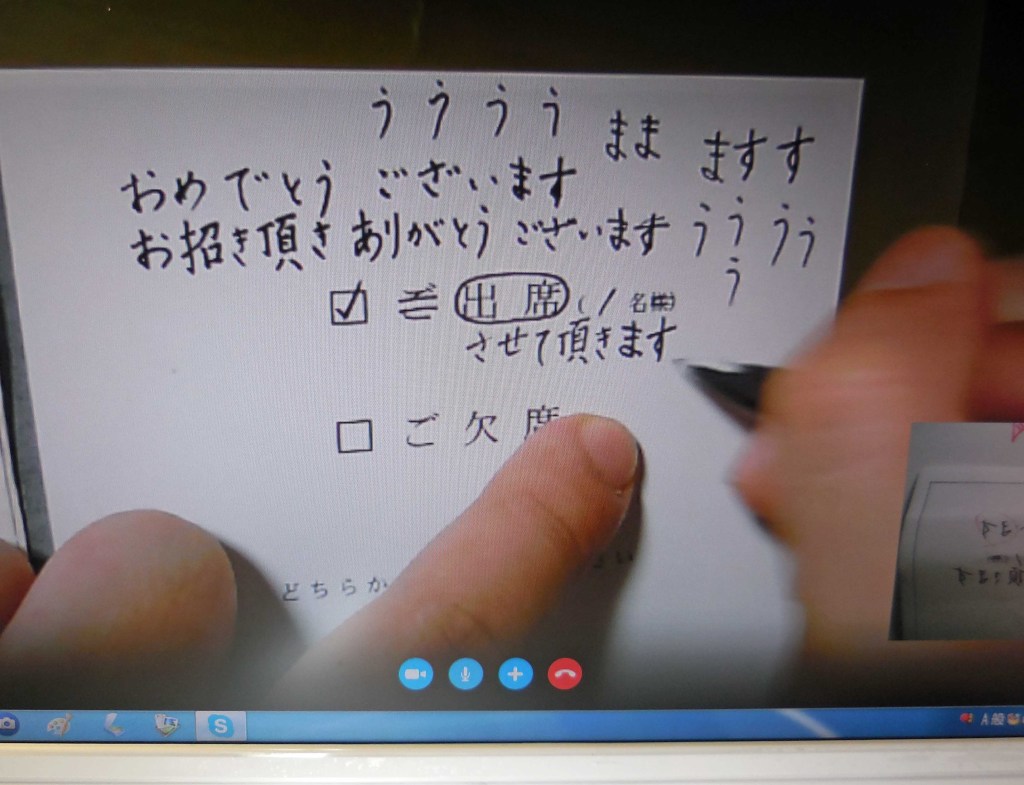 うううう
まま
ますす
おめでとう ございます
お招き頂き ありがとう ございます
うう うう
う
☑ ご 出席 ( 1 名様)
させて頂きます
□ ご欠席
どちらか
A 般